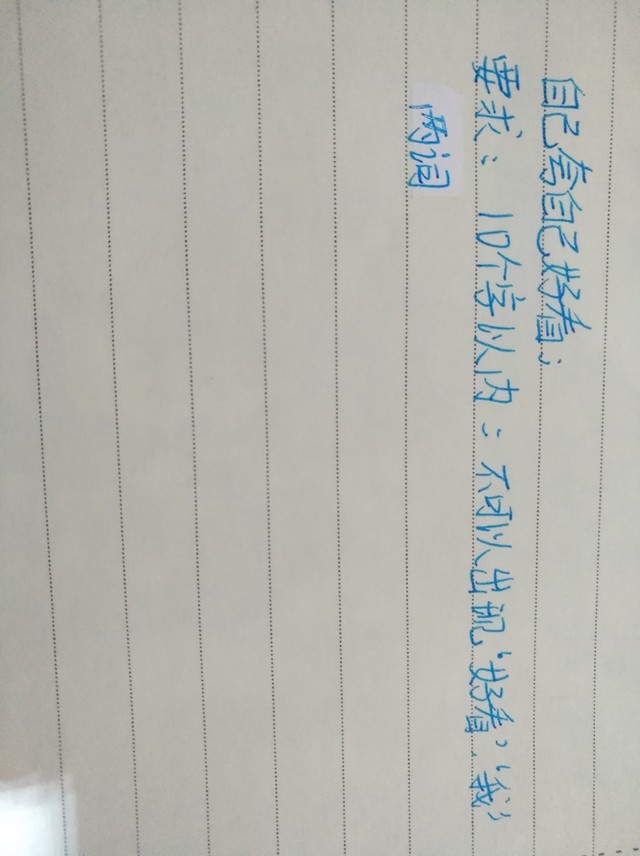 自己夸自己好看；
要求：10个字以内；不可以出现“好看”“我”
两词